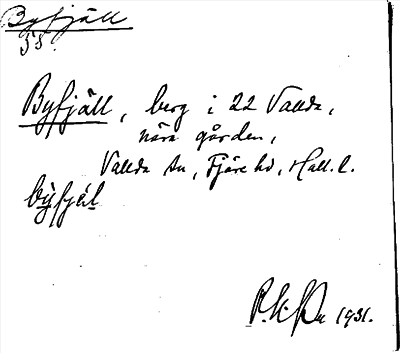 Byfjäll
Byfjäll, berg i 22 Vallda,
nära gården,
Vallda sn, Fjäre hd, Hall. l.
býfjäl
1931.